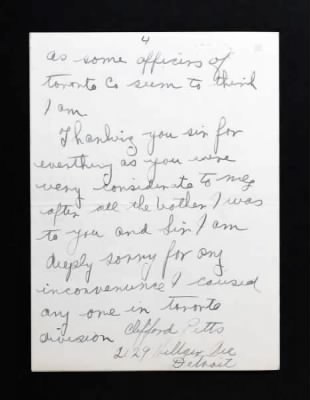 4
as some officers of
toronto Co seem to think
I am.
Thanking you sir for
everthing as you were
very considerate to me,
after all the bother I was
to you and Sir I am
deeply sorry for any
inconvenience I caused
any one in toronto
division Clifford Pitts
2129 Ave
Detroit